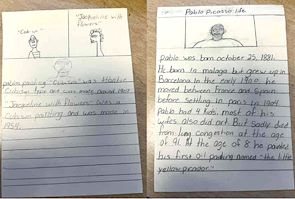 "Cubism"
"Jacqueline with
flowers"
pablos painting "Cubism" was
true and was made around 1907
"Jacqueline with flowers" was a
cubism painting and was made in
1954.
Pablo Picasso life
pablo was born october 25, 1881.
He born in malaga but grew up in
Barcelona in the early 1900. he
moved between France and Spain
before settling in paris in 1904
Pablo had 4 kids. most of his
wifes also did art. But Sadly died
from lung congestion at the age
of 91. At the age of 8 he painted
his first oil painting named "the little
yellow picador".